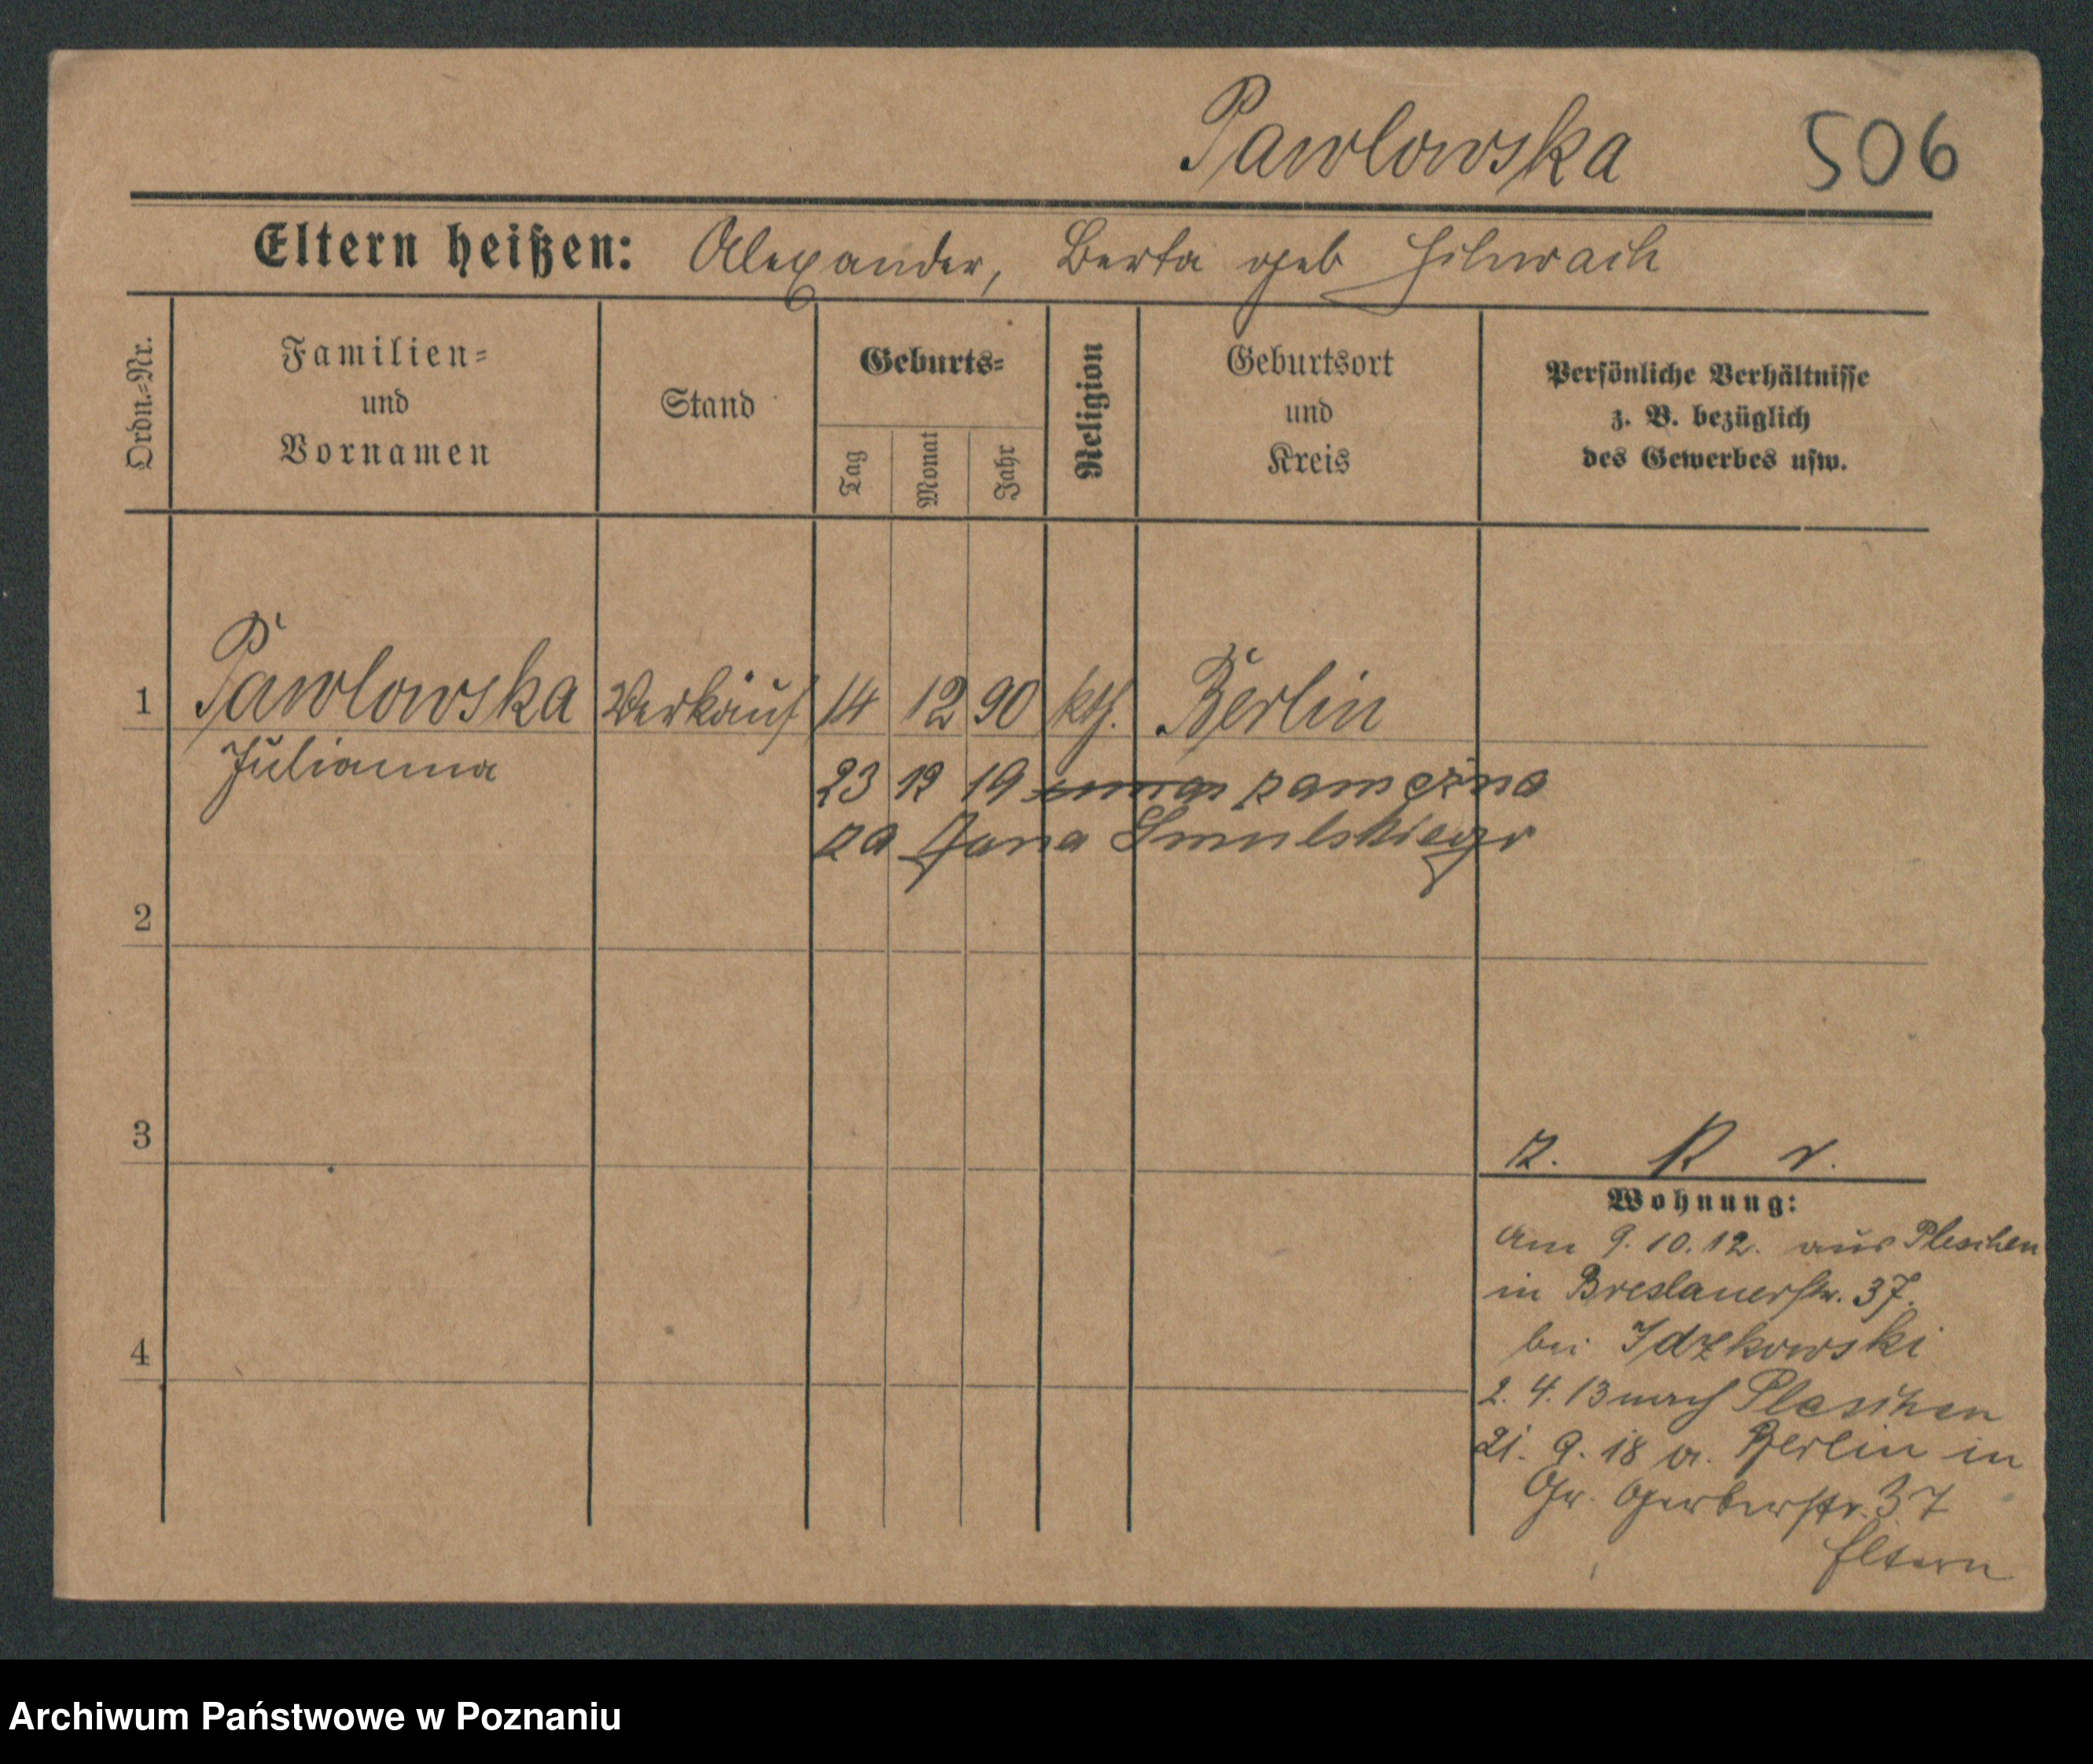 Pawlowska 506
Eltern heißen: Alexander, Berta geb
Ordn.-Nr.
Familien-
und
Vornamen
Stand
Geburts-
Tag
Monat
Jahr
Religion
Geburtsort
und
Kreis
Persönliche Verhältnisse
z. B. bezüglich
des Gewerbes usw.
1 Pawlowska Verkäuf 14 12 90 kth. Berlin
Julianna
23 12 19 zamężna
za Jana Smulskiego
2
3
4
z. K r.
Wohnung:
am 9. 10. 12. aus Pleschen
in Breslauerstr. 37.
bei Idzkowski
2. 4. 13 nach Pleschen
21. 9. 18 a. Berlin in
Gr. Gerberstr. 37
Eltern
Archiwum Państwowe w Poznaniu